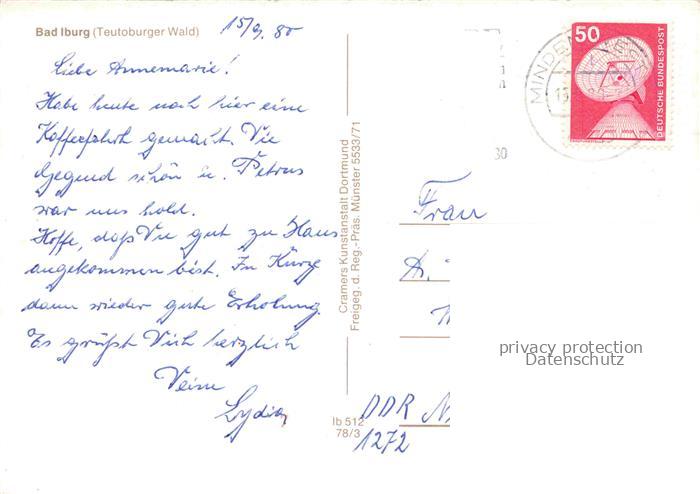 Bad Iburg (Teutoburger Wald)
15/9. 80
Liebe Annemarie!
Habe heute nach hier eine
Kaffeefahrt gemacht. Die
Gegend schön u. Petrus
war uns hold.
Hoffe, daß Du gut zu Haus
angekommen bist. In Kürze
dann wieder gute Erholung.
Es grüßt Dich herzlich
Deine
Lydia
Cramers Kunstanstalt Dortmund
Freigeg. d. Reg.-Präs. Münster 5533/71
Ib 512
78/3
50
DEUTSCHE BUNDESPOST
MINDEN
30
Frau
privacy protection
Datenschutz
DDR
1272